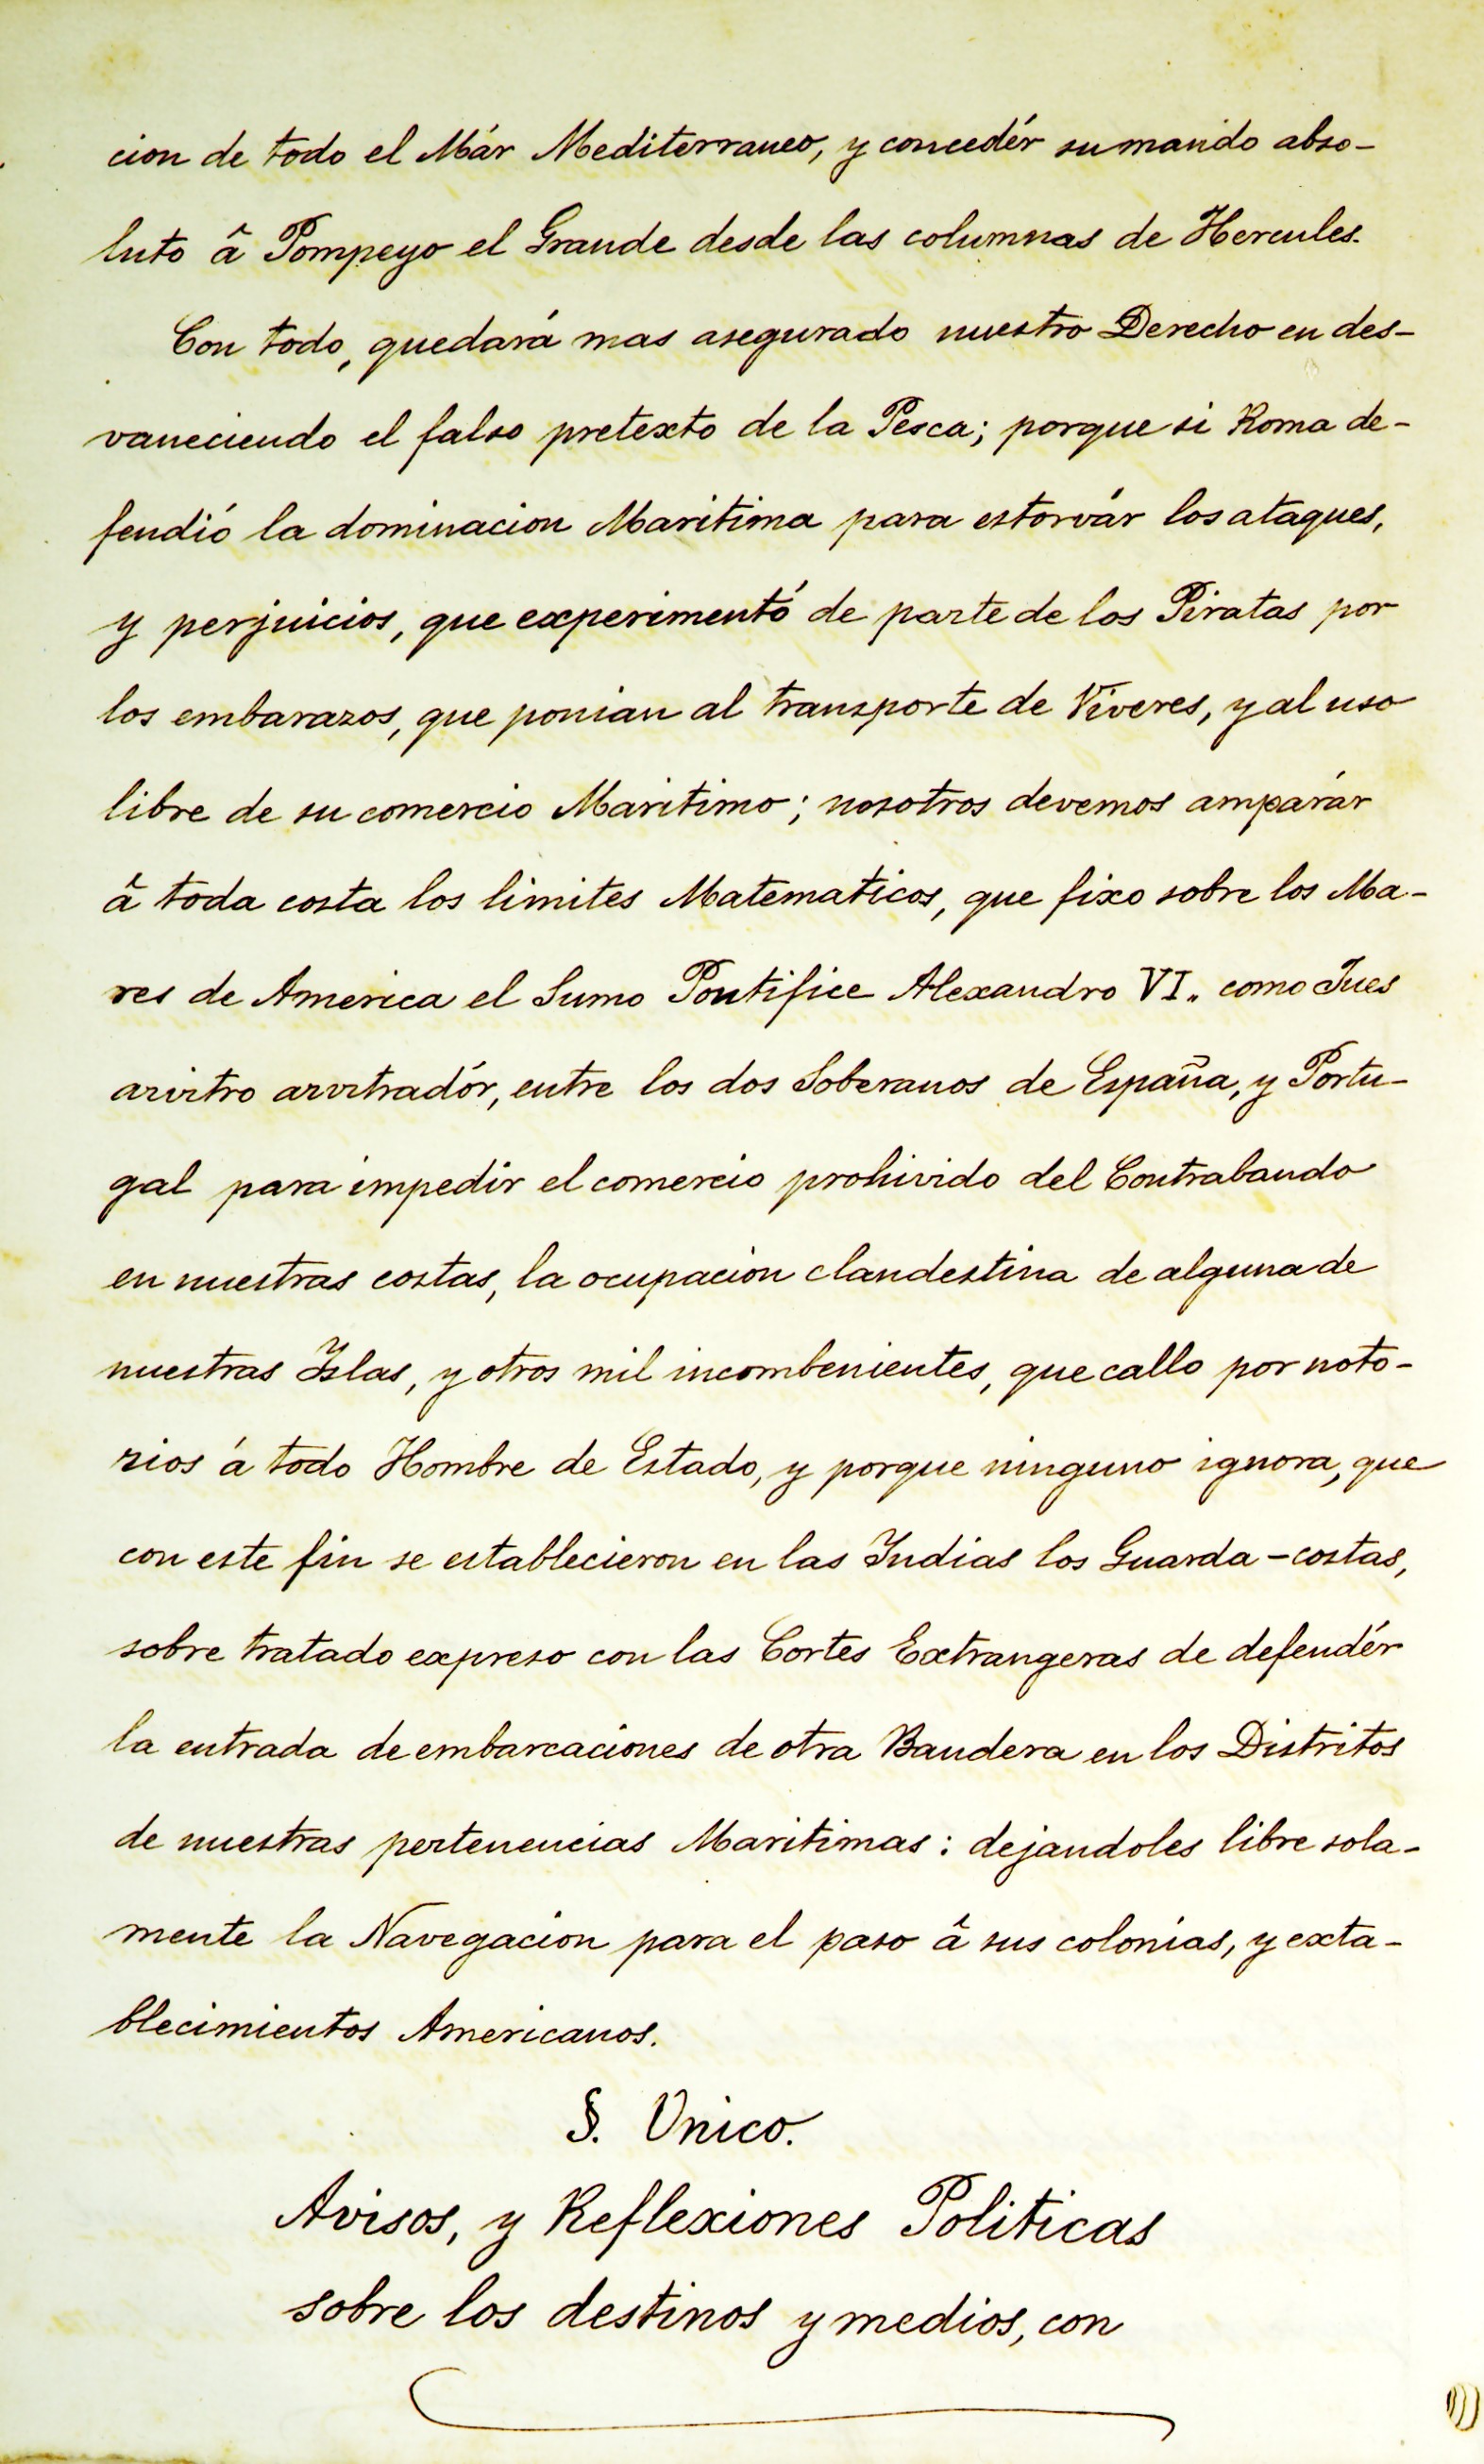 cion de todo el Már Mediterraneo, y concedér su mando abso-
luto â Pompeyo el Grande desde las columnas de Hercules.
Con todo, quedará mas asegurado nuestro Derecho en des-
vaneciendo el falso pretexto de la Pesca; porque si Roma de-
fendió la dominacion Maritima para estorvár los ataques,
y perjuicios, que experimentó de parte de los Piratas por
los embarazos, que ponian al transporte de Viveres, y al uso
libre de su comercio Maritimo; nosotros devemos amparár
â toda costa los limites Matematicos, que fixo sobre los Ma-
res de America el Sumo Pontifice Alexandro VI. como Jues
arvitro arvitradór, entre los dos Soberanos de España, y Portu-
gal para impedir el comercio prohivido del Contrabando
en nuestras costas, la ocupacion clandestina de alguna de
nuestras Islas, y otros mil incombenientes, que callo por noto-
rios á todo Hombre de Estado, y porque ninguno ignora, que
con este fin se establecieron en las Indias los Guarda-costas,
sobre tratado expreso con las Cortes Extrangeras de defendér
la entrada de embarcaciones de otra Bandera en los Distritos
de nuestras pertenencias Maritimas: dejandoles libre sola-
mente la Navegacion para el paso â sus colonias, y exta-
blecimientos Americanos.
§. Unico.
Avisos, y Reflexiones Politicas
sobre los destinos y medios, con